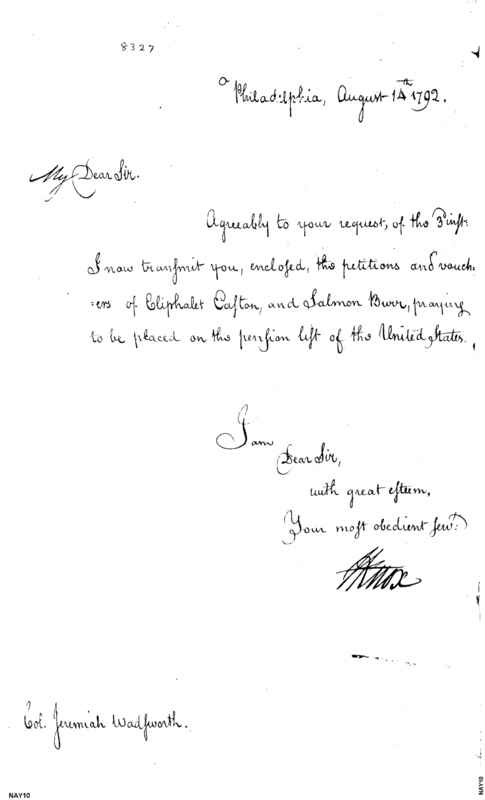 8327
Philadelphia, August 14th 1792.
My Dear Sir.
Agreeably to your request, of the 3d inst.
I now transmit you, enclosed, the petitions and vouch:
:ers of Eliphalet Easton, and Salmon Burr, praying
to be placed on the pension list of the United States.
I am
Dear Sir,
with great esteem,
Your most obedient servt.
HKnox
Col. Jeremiah Wadsworth.
NAY10
NAY10